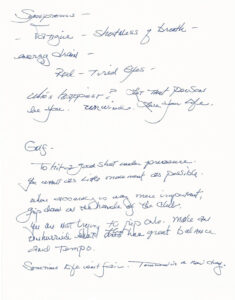 Symptoms -
- Fatigue - Shortness of breath -
energy drain -
Red - Tired Eyes -
Who's happier? The that person
in you. Save your life.
Guy -
To hit a good shot under pressure
You want as little movement as possible.
when accuracy is way more important,
grip down on the handle of the club.
You are not trying to rip one. Make an
unhurried that has great balance
and Tempo.
Sometimes life isn't fair. Tomorrow is a new day.